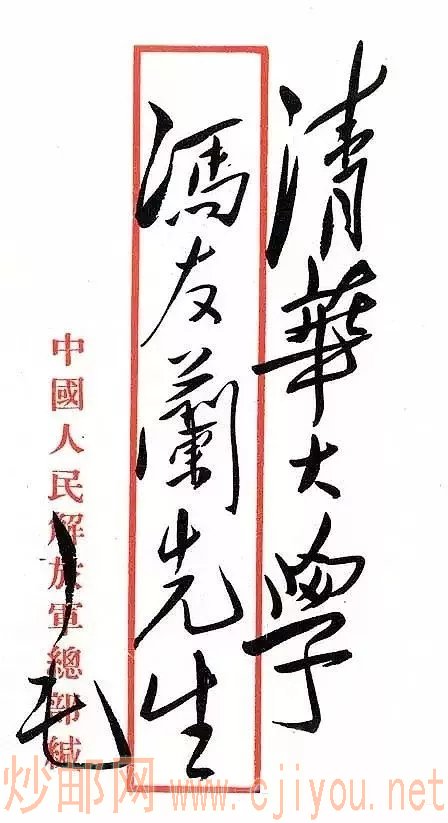 清華大學
馮友蘭先生
中國人民解放軍總部緘
毛
炒邮网 www.cjiyou.net